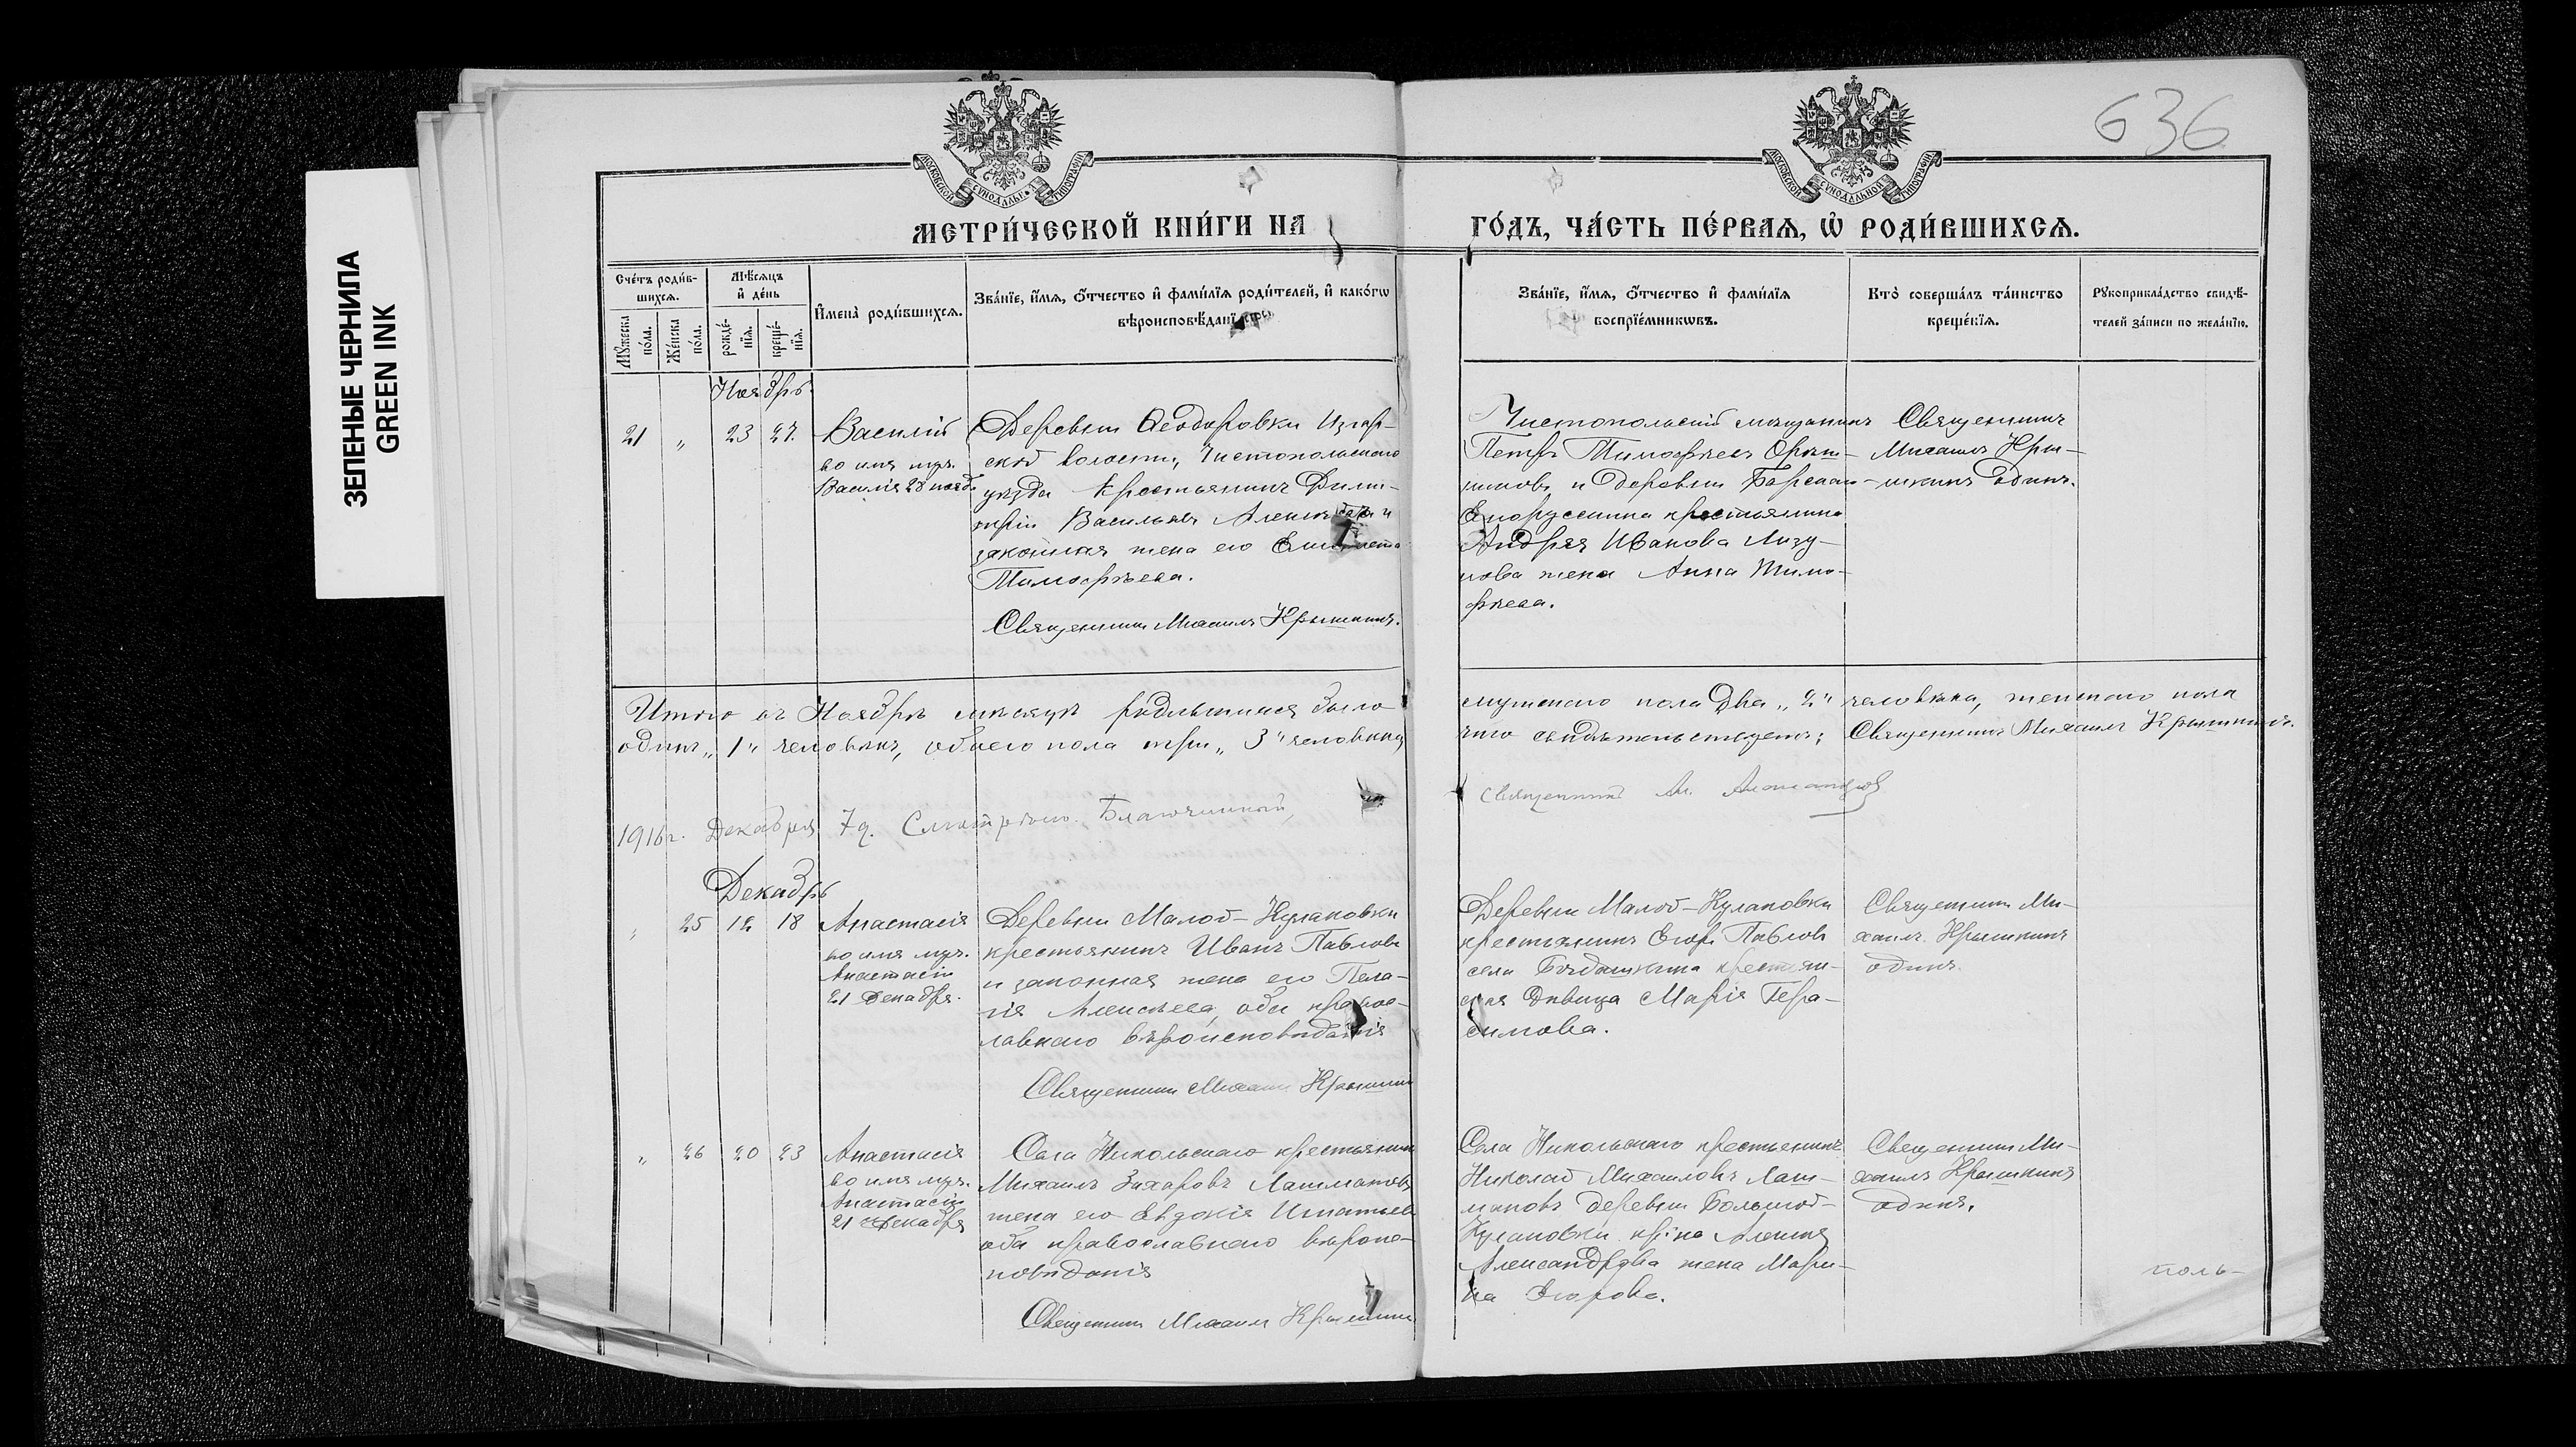 ЗЕЛЕНЫЕ ЧЕРНИЛА
GREEN INK
636
МОСКОВСКОЙ СѴНОДАЛЬНОЙ ТИПОГРАФІИ
МОСКОВСКОЙ СѴНОДАЛЬНОЙ ТИПОГРАФІИ
МЕТРИ́ЧЕСКОЙ КНИ́ГИ НА
ГО́ДЪ, ЧА́СТЬ ПЕ́РВАЯ, Ѡ҆ РОДИ́ВШИХСѦ.
Сче́тъ роди́в-
шихсѧ.
Мꙋ́жеска
по́ла.
Же́нска
по́ла.
Мѣ́сѧцъ
и҆ де́нь
рожде́-
нїѧ.
креще́-
нїѧ.
И҆мена̀ роди́вшихсѧ.
Зва́нїе, и҆́мѧ, ѻ҆́тчество и҆ фами́лїѧ роди́телей, и҆ како́гѡ
вѣроисповѣ́данїѧ
Зва́нїе, и҆́мѧ, ѻ҆́тчество и҆ фами́лїѧ
воспрїе́мникѡвъ.
Кто̀ соверша́лъ та́инство
креще́нїѧ.
Рꙋкоприкла́дство свидѣ́-
телей за́писи по жела́нїю.
Ноябрь
21 " 23 27.
Василій
во имя муч.
Василія 28 нояб.
Деревни Ѳеодоровки Изгар-
ской волости, Чистопольскаго
уѣзда крестьянинъ Дими-
трій Васильевъ и
законная жена его Елизавета
Тимофѣева.
Священникъ Михаилъ Крышкинъ.
Чистопольскій мѣщанинъ
Петръ Тимофѣевъ
и деревни
крестьянина
Андрея Иванова Лизу-
нова жена Анна Тимо-
фѣева.
Священникъ
Михаилъ Кры-
шкинъ одинъ.
Итого въ Ноябрѣ мѣсяцѣ родившихся было
мужескаго пола два „2" человѣка, женскаго пола
одинъ „1" человѣкъ, обоего пола три „3" человѣка,
что свидѣтельствуетъ: Священникъ Михаилъ Крышкинъ.
1916 г. Декабря 7 д. Смотрѣлъ. Благочинный,
священникъ
Декабрь
" 25 12 18
Анастасія
во имя муч.
Анастасіи
21 Декабря.
Деревни Малой-Кулаповки
крестьянинъ Иванъ Павловъ
и законная жена его Пела-
гія Алексѣева, оба правос-
лавнаго вѣроисповѣданія
Священникъ Михаилъ Крышкинъ
Деревни Малой-Кулаповки
крестьянинъ Егоръ Павловъ
села крестьян-
ская дѣвица Марія Гера-
симова.
Священникъ Ми-
хаилъ Крышкинъ
одинъ.
" 26 20 23
Анастасія
во имя муч.
Анастасіи
21 Декабря
Села Никольскаго крестьянинъ
Михаилъ Захаровъ Лашмановъ
жена его Евдокія Игнатьева
оба православнаго вѣроис-
повѣданія
Священникъ Михаилъ Крышкинъ
Села Никольскаго крестьянинъ
Николай Михаиловъ Лаш-
мановъ деревни Большой-
Кулаповки кр-на
Александрова жена Мари-
на Егорова.
Священникъ Ми-
хаилъ Крышкинъ
одинъ.
поль-